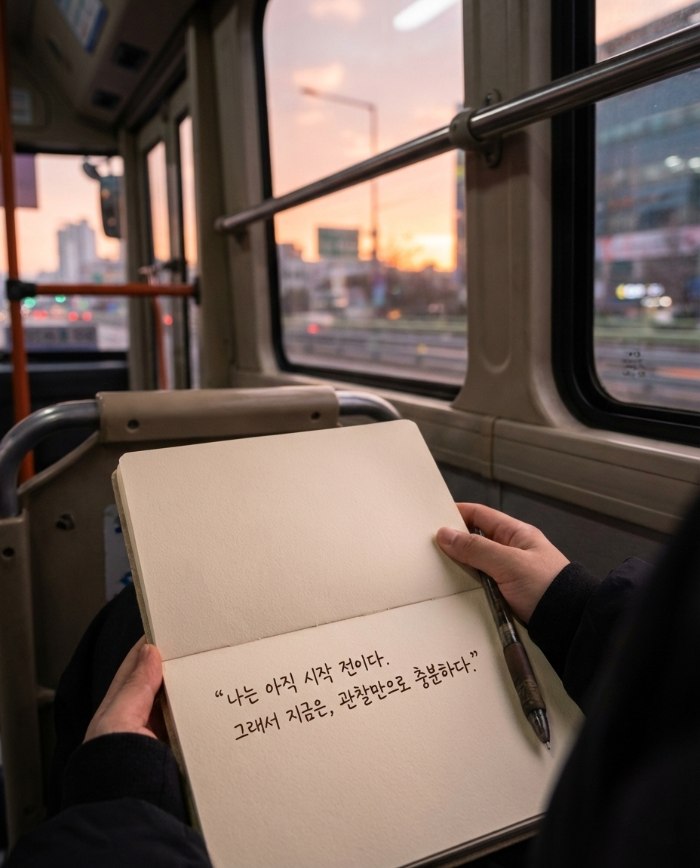 “나는 아직 시작 전이다.
그래서 지금은, 관찰만으로 충분하다.”